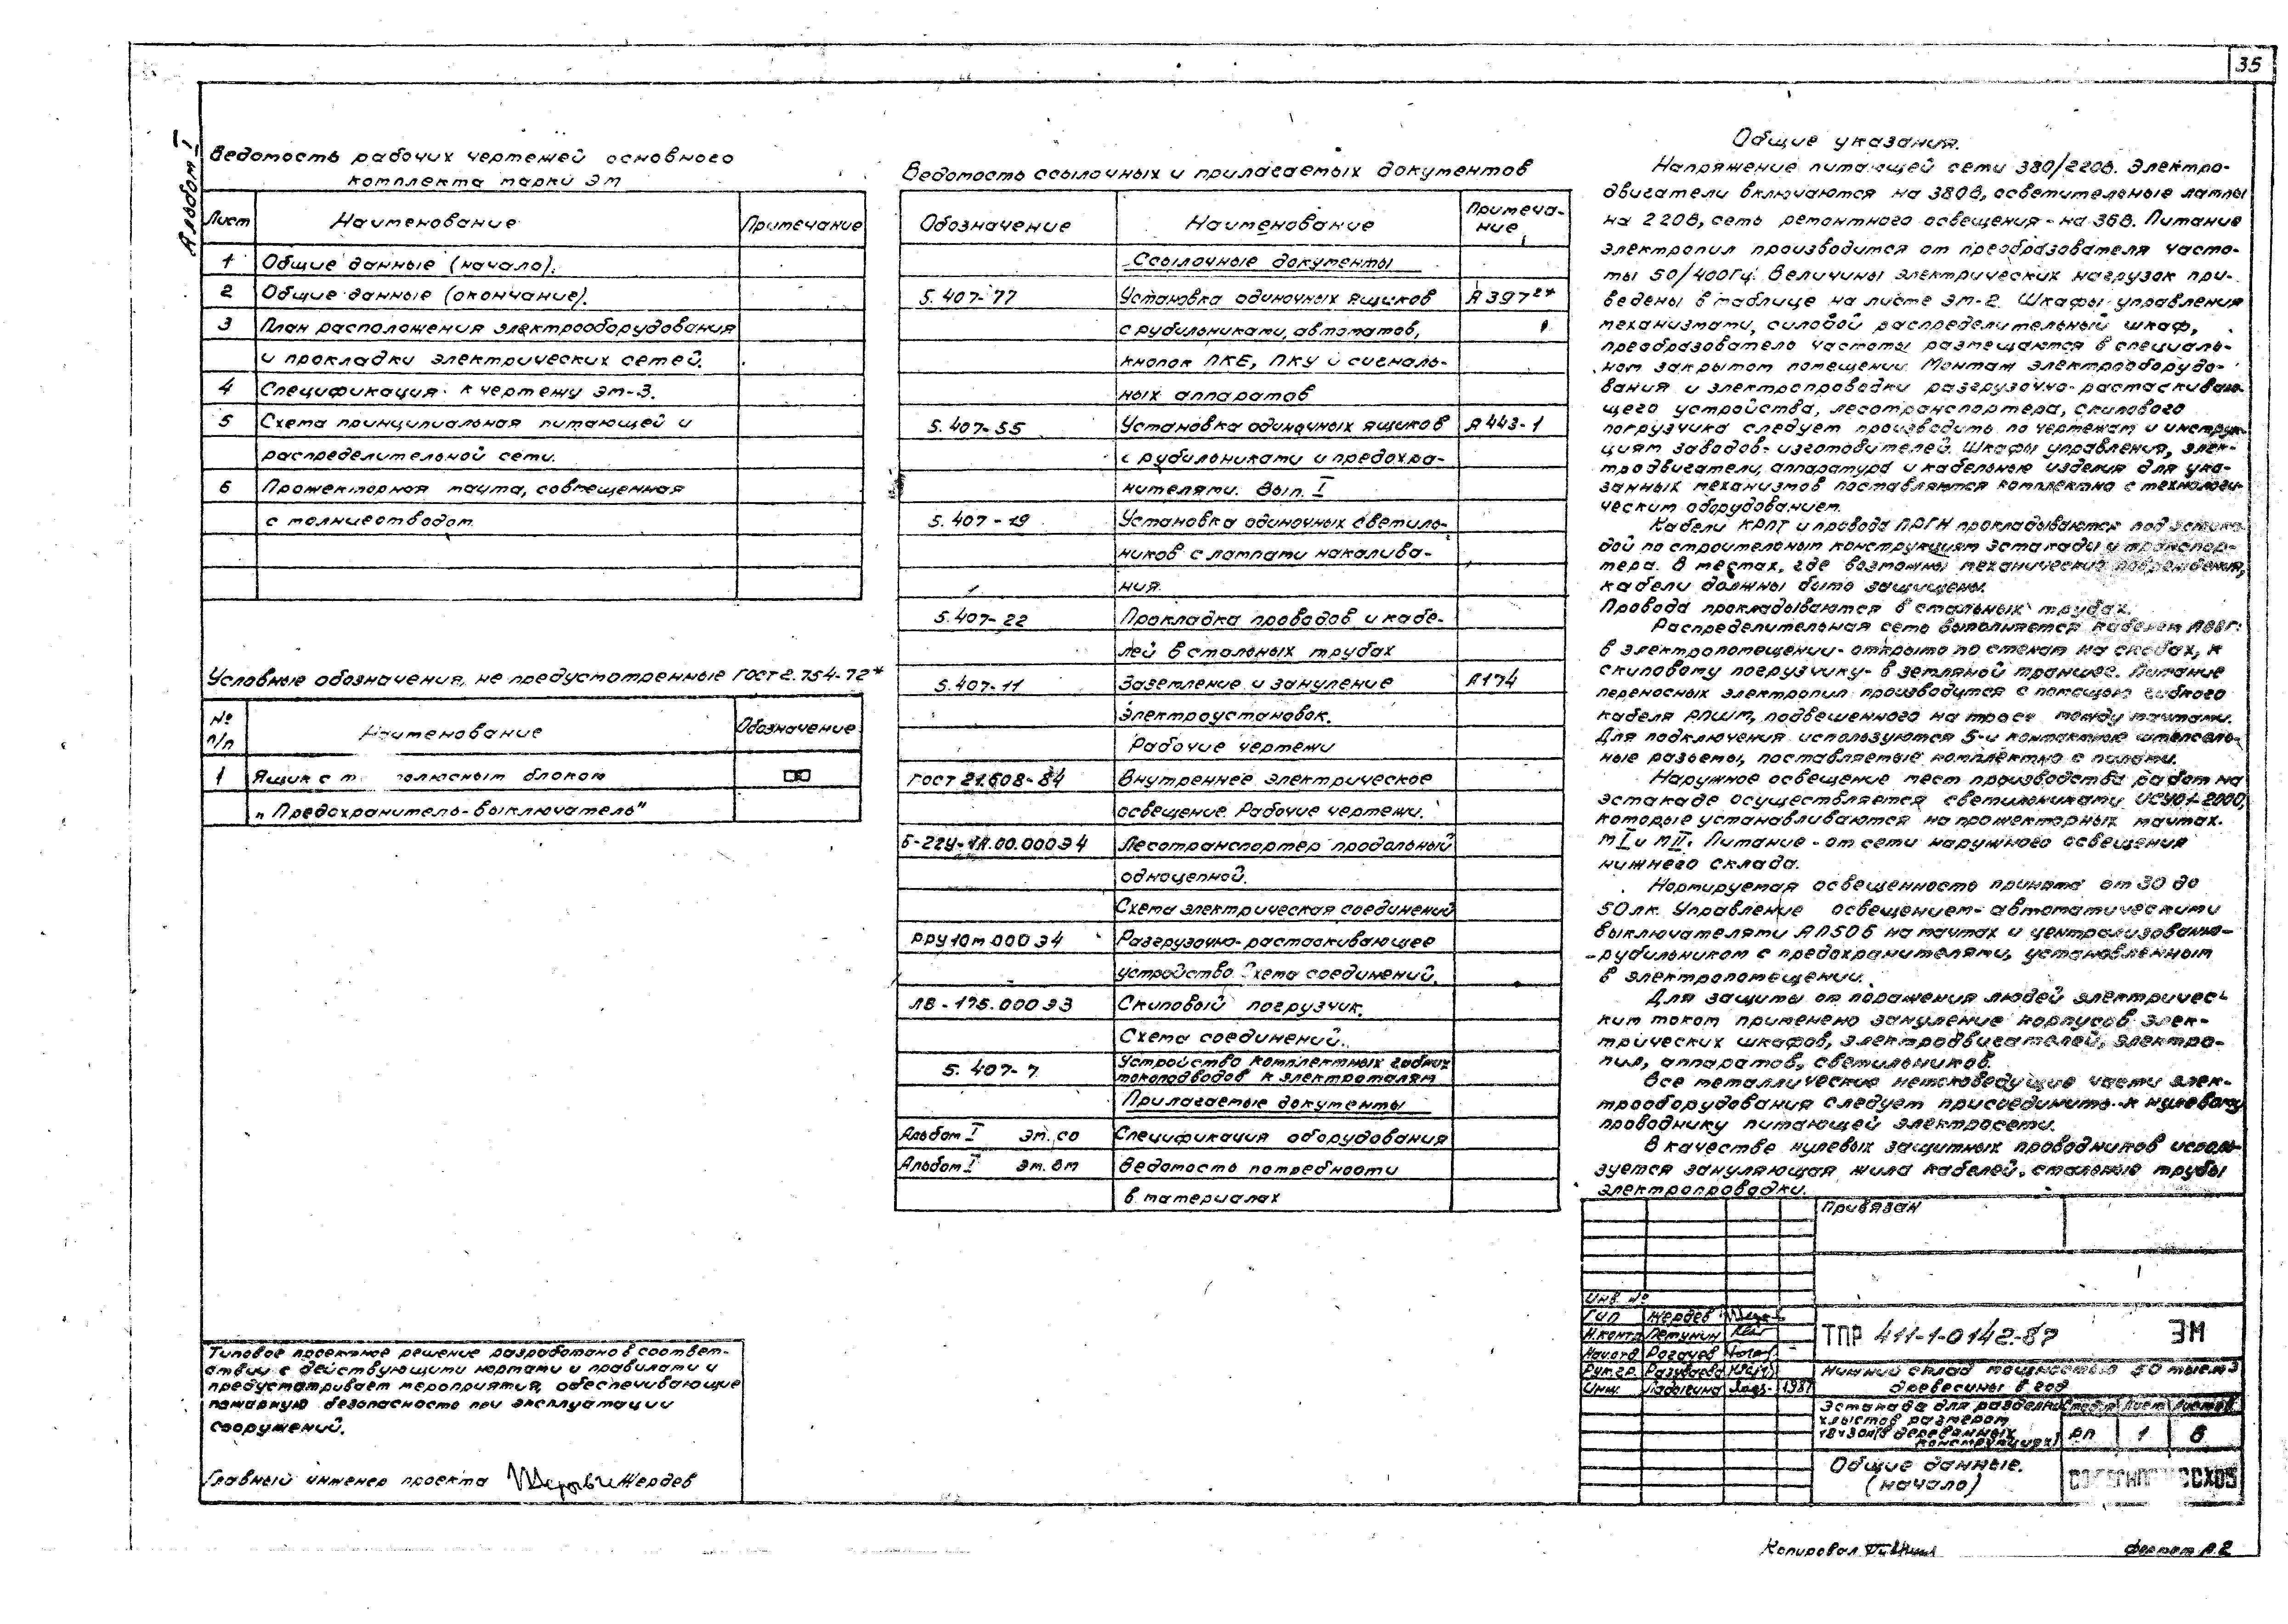 35
Альбом I
Ведомость рабочих чертежей основного
комплекта марки ЭМ
Лист Наименование Примечание
1 Общие данные (начало).
2 Общие данные (окончание).
3 План расположения электрооборудования
и прокладки электрических сетей.
4 Спецификация к чертежу ЭМ-3.
5 Схема принципиальная питающей и
распределительной сети.
6 Прожекторная мачта, совмещенная
с молниеотводом
Условные обозначения, не предусмотренные ГОСТ 2.754-72*
№ п/п Наименование Обозначение
1 Ящик с блоком
„Предохранитель-выключатель"
Типовое проектное решение разработано в соответ-
ствии с действующими нормами и правилами и
предусматривает мероприятия, обеспечивающие
пожарную безопасность при эксплуатации
сооружений.
Главный инженер проекта Жердев
Ведомость ссылочных и прилагаемых документов
Обозначение Наименование Примеча-
ние
Ссылочные документы
5.407-77 Установка одиночных ящиков А397
с рубильниками, автоматов,
кнопок ПКЕ, ПКУ и сигналь-
ных аппаратов
5.407-55 Установка одиночных ящиков А443-1
с рубильниками и предохра-
нителями. Вып. I
5.407-19 Установка одиночных светиль-
ников с лампами накалива-
ния
5.407-22 Прокладка проводов и кабе-
лей в стальных трубах
5.407-11 Заземление и зануление А174
электроустановок.
Рабочие чертежи
ГОСТ 21.608-84 Внутреннее электрическое
освещение. Рабочие чертежи.
Б-22У-1А.00.000Э4 Лесотранспортер продольный
одноцепной.
Схема электрическая соединений
РРУ10м 000 Э4 Разгрузочно-растаскивающее
устройство Схема соединений.
ЛВ-175.000 Э3 Скиповый погрузчик.
Схема соединений.
5.407-7 Устройство комплектных гибких
токоподводов к электроталям
Прилагаемые документы
Альбом I ЭМ.СО Спецификация оборудования
Альбом I ЭМ.ВМ Ведомость потребности
в материалах
Общие указания.
Напряжение питающей сети 380/220В. Электро-
двигатели включаются на 380В, осветительные лампы
на 220В, сеть ремонтного освещения - на 36В. Питание
электропил производится от преобразователя часто-
ты 50/400Гц. Величины электрических нагрузок при-
ведены в таблице на листе ЭМ-2. Шкафы управления
механизмами, силовой распределительный шкаф,
преобразователь частоты размещаются в специаль-
ном закрытом помещении. Монтаж электрооборудо-
вания и электропроводки разгрузочно-растаскиваю-
щего устройства, лесотранспортера, скипового
погрузчика следует производить по чертежам и инструк-
циям заводов-изготовителей. Шкафы управления, элек-
тродвигатели, аппаратура и кабельные изделия для ука-
занных механизмов поставляются комплектно с технологи-
ческим оборудованием.
Кабели КРПТ и провода ПРГН прокладываются под эстака-
дой по строительным конструкциям эстакады и транспор-
тера. В местах, где возможны механические повреждения,
кабели должны быть защищены.
Провода прокладываются в стальных трубах.
Распределительная сеть выполняется кабелем АВВГ:
в электропомещении - открыто по стенам на скобах, к
скиповому погрузчику - в земляной траншее. Питание
переносных электропил производится с помощью гибкого
кабеля РПШМ, подвешенного на тросе между мачтами.
Для подключения используются 5-и контактные штепсель-
ные разъемы, поставляемые комплектно с пилами.
Наружное освещение мест производства работ на
эстакаде осуществляется светильниками 2000,
которые устанавливаются на прожекторных мачтах.
МI и МII. Питание - от сети наружного освещения
нижнего склада.
Нормируемая освещенность принята от 30 до
50лк. Управление освещением - автоматическими
выключателями АП50Б на мачтах и централизованно-
- рубильником с предохранителями, установленным
в электропомещении.
Для защиты от поражения людей электричес-
ким током применено зануление корпусов элек-
трических шкафов, электродвигателей, электро-
пил, аппаратов, светильников.
Все металлические нетоковедущие части элек-
трооборудования следует присоединить к нулевому
проводнику питающей электросети.
В качестве нулевых защитных проводников исполь-
зуется зануляющая жила кабелей, стальные трубы
электропроводки.
Привязан
Инв. №
ГИП Жердев
Н.контр Летунин
Нач.отд Рогачев
Рук.гр.
Инж. 1987
ТПР 411-1-0142-87 ЭМ
Нижний склад мощностью 50 тыс.м3
древесины в год
Эстакада для разделки
хлыстов размером
18×30м (в деревянных
конструкциях)
Стадия Лист Листов
РП 1 6
Общие данные.
(начало)
Копировал
Формат А2